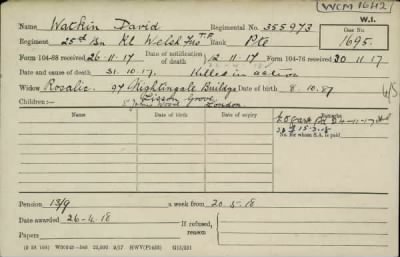 WCM 16412
W.I.
Name Watkin David Regimental No. 355973
Case No.
1695.
Regiment 25th Bn Rl Welsh Fus T.F. Rank Pte
Form 104-88 received 26.11.17 Date of notification of death 12.11.17 Form 104-76 received 30.11.17
Date and cause of death 31.10.17. Killed in action
Widow Rosalie. 94 Nightingale Buildgs Date of birth 8.10.87
Lisson Grove
Children:— St Johns Wood London.
Name Date of birth Date of expiry Name Date of birth Date of expiry Remarks
24-11-17
15.3.18
No. for whom S.A. is paid
Pension 13/9 a week from 20.5.18
Date awarded 26-4.18 If refused, reason
Papers